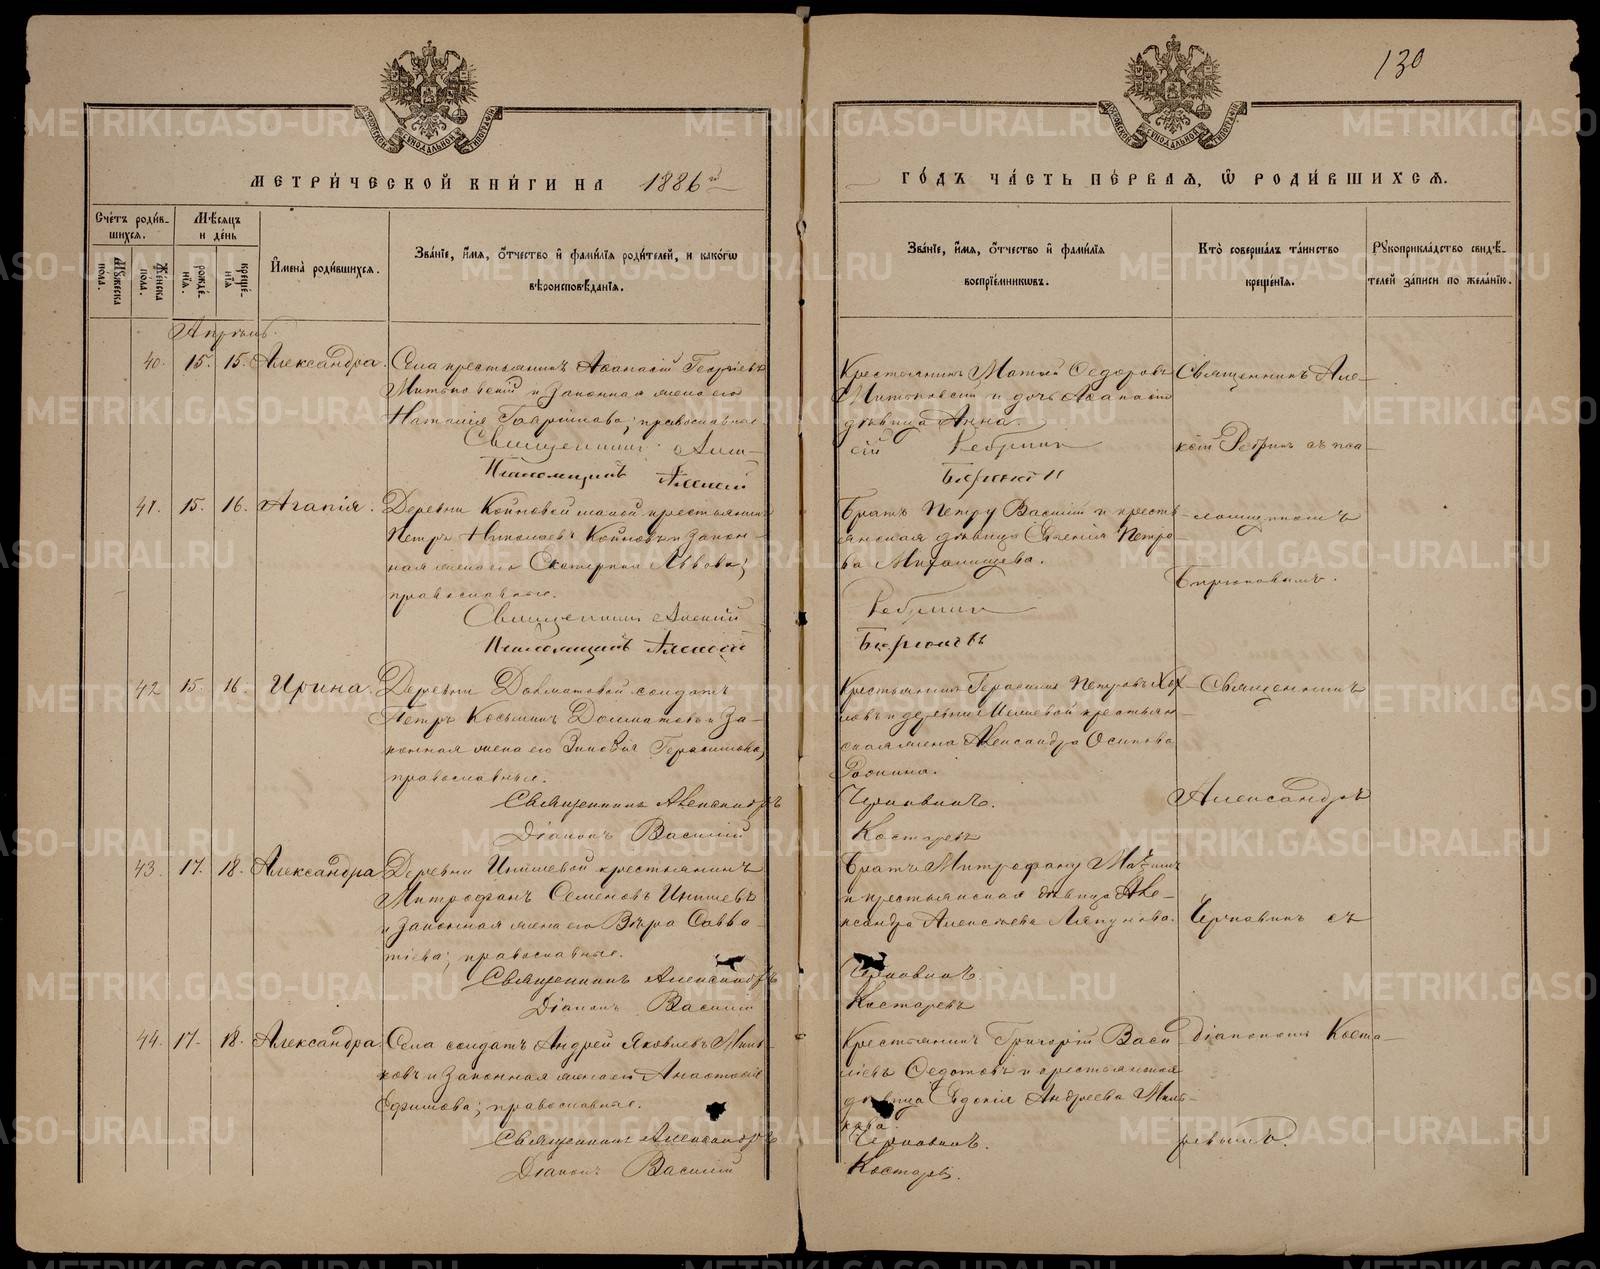 130
МЕТРИ́ЧЕСКОЙ КНИ́ГИ НА 1886й
ГО́ДЪ ЧА́СТЬ ПЕ́РВАѦ, Ѿ РОДИ́ВШИХСѦ.
Счéтъ роди́в-
шихсѧ.
Мꙋжеска
пола.
Женска
пола.
Мѣсѧцъ
и де́нь
рожде́-
нїѧ.
креще́-
нїѧ
И҆мена̀ роди́вшихсѧ.
Зва́нїе, и҆́мѧ, ѻ҆́тчество и҆ фами́лїѧ роди́телей, и како́гѡ
вѣроисповѣ́данїѧ.
Зва́нїе, и҆́мѧ, ѻ҆́тчество и҆ фами́лїѧ
воспрїе́мникѡвъ.
Кто̀ соверша́лъ та́инство
креще́нїѧ.
Рꙋкоприкла́дство свидѣ́-
телей за́писи по жела́нїю.
Апрѣль.
40. 15. 15. Александра.
Села крестьянинъ Аѳанасій Георгіевъ
Митьковскій и законная жена его
Наталія Гавріилова; православные
Священникъ Алек-
Псаломщикъ Алексій
Крестьянинъ Матѳей Ѳедоровъ
Митьковскій и дочь Аѳанасія
дѣвица Анна.
сій Ребринъ
Бирюковъ
Священникъ Але-
ксій Ребринъ съ пса-
41. 15. 16. Агапія.
Деревни Койновой малой крестьянинъ
Петръ Николаевъ Койновъ и закон-
ная жена его Екатерина Львова;
православные.
Священникъ Алексій
Псаломщикъ Алексій
Братъ Петру Василій и кресть-
янская дѣвица Евгенія Петро-
ва Михалищева.
Ребринъ
Бирюковъ
ломщикомъ
Бирюковымъ.
42 15. 16. Ирина.
Деревни Долматовой солдатъ
Петръ Косьминъ Долматовъ и за-
конная жена его Зиновія Герасимова,
православные.
Священникъ Александръ
Діаконъ Василій
Крестьянинъ Герасимъ Петровъ Хох-
ловъ и деревни крестьян-
ская жена Александра Осипова
Чернавинъ.
Костаревъ
Священникъ
Александръ
43. 17. 18. Александра
Деревни Инишевой крестьянинъ
Митрофанъ Семеновъ Инишевъ
и законная жена его Вѣра Савва-
тіева; православные.
Священникъ Александръ
Діаконъ Василій
Братъ Митрофану Максимъ
и крестьянская дѣвица Але-
ксандра Алексѣева Ляпунова.
Чернавинъ
Костаревъ
Чернавинъ съ
44. 17. 18. Александра.
Села солдатъ Андрей Яковлевъ Миль-
ковъ и законная жена его Анастасія
Ефимова; православные.
Священникъ Александръ
Діаконъ Василій
Крестьянинъ Григорій Васи-
ліевъ Ѳедотовъ и крестьянская
дѣвица Евдокія Андреева Миль-
кова.
Чернавинъ.
Костаревъ.
діакономъ Коста-
ревымъ.
METRIKI.GASO-URAL.RU